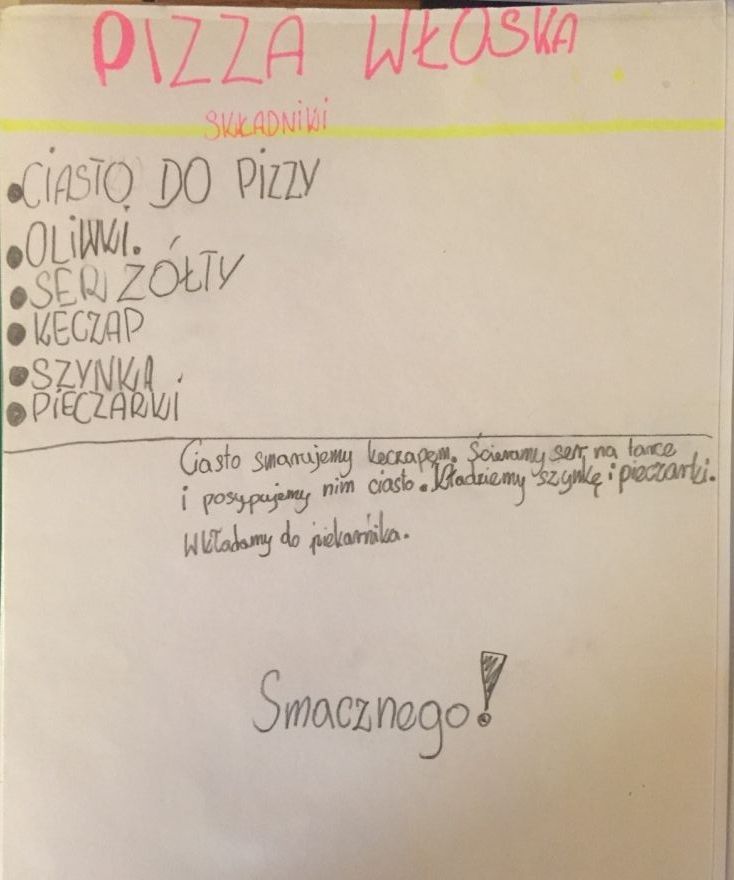 PIZZA WŁOSKA
SKŁADNIKI
•CIASTO DO PIZZY
•OLIWKI.
•SER ŻÓŁTY
•KECZAP
•SZYNKA
•PIECZARKI
Ciasto smarujemy keczapem. Ścieramy ser na tarce
i posypujemy nim ciasto. Kładziemy szynkę i pieczarki.
Wkładamy do piekarnika.
Smacznego!